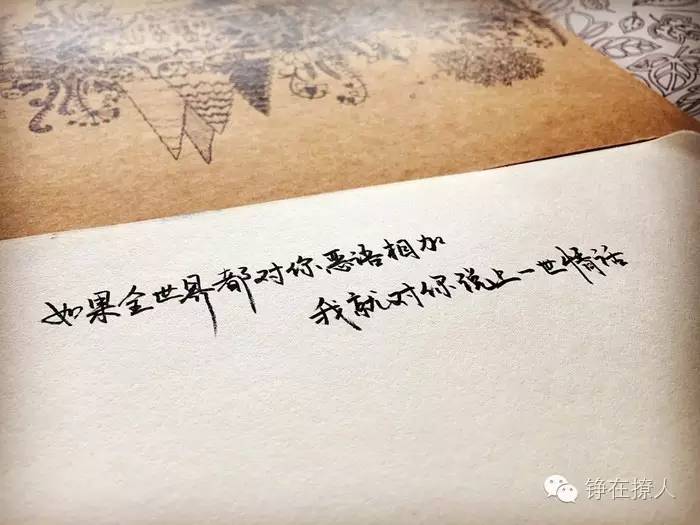 如果全世界都对你恶语相加
我就对你说上一世情话
铮在撩人